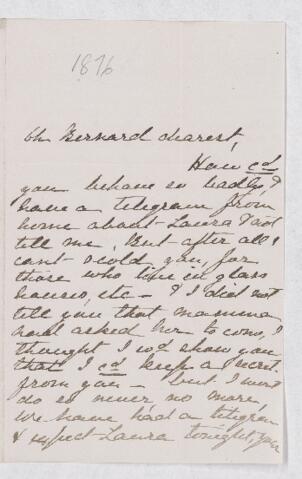 1876
Oh Bernard dearest,
How cd
you behave so badly, &
have a telegram from
home about Laura & not
tell me. But after all I
cant scold you, for
those who live in glass
houses, etc - & I did not
tell you that mamma
had asked her to come, I
thought I wd show you
that I cd keep a secret
from you - but I wont
do so never no more,
We have had a telegram
& expect Laura tonight, you